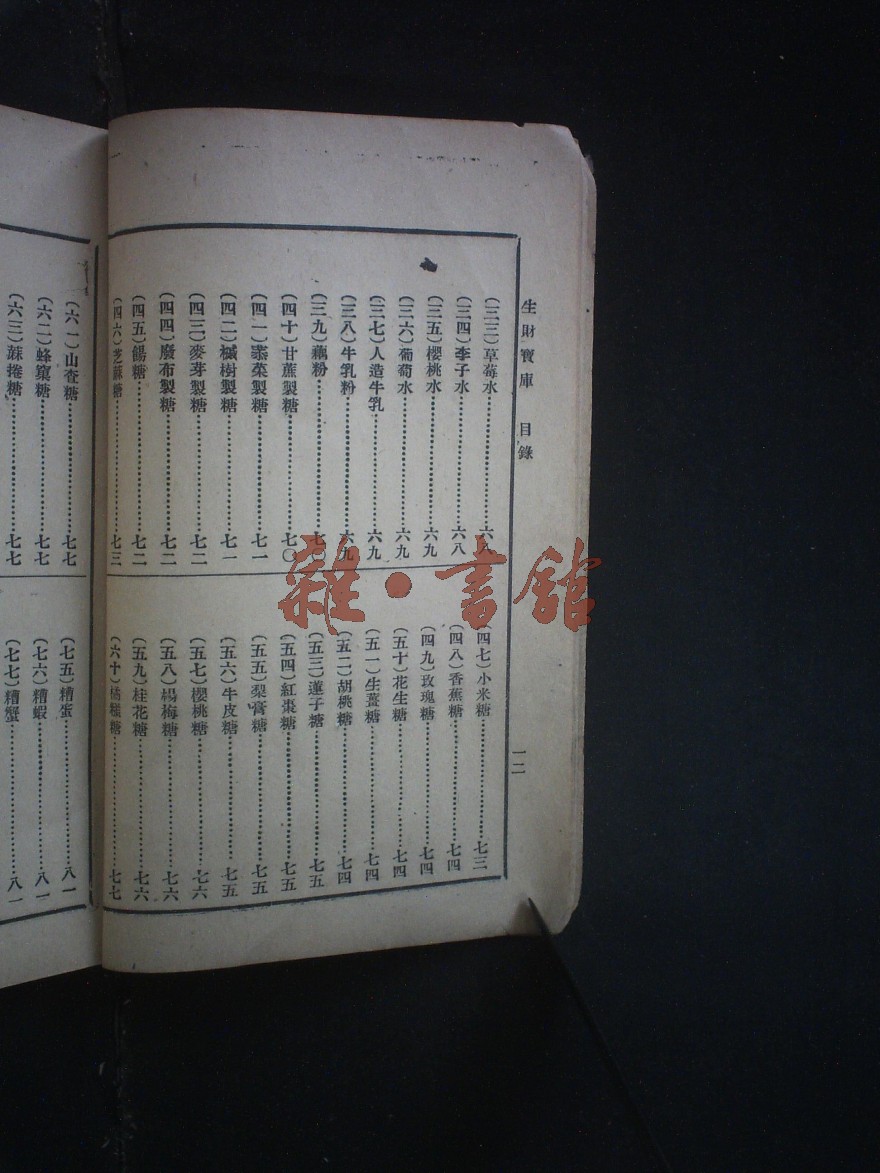 生財寶庫　目錄
一二
(三三)草莓水……六八
(三四)李子水……六八
(三五)櫻桃水……六九
(三六)葡萄水……六九
(三七)人造牛乳……六九
(三八)牛乳粉……六九
(三九)藕粉……七〇
(四十)甘蔗製糖……七〇
(四一)菾菜製糖……七一
(四二)槭樹製糖……七一
(四三)麥芽製糖……七二
(四四)廢布製糖……七二
(四五)餳糖……七二
(四六)芝蔴糖……七三
(四七)小米糖……七三
(四八)香蕉糖……七四
(四九)玫瑰糖……七四
(五十)花生糖……七四
(五一)生薑糖……七四
(五二)胡桃糖……七四
(五三)蓮子糖……七五
(五四)紅棗糖……七五
(五五)梨膏糖……七五
(五六)牛皮糖……七五
(五七)櫻桃糖……七六
(五八)楊梅糖……七六
(五九)桂花糖……七六
(六十)橘糕糖……七七
(六一)山查糖……七七
(六二)蜂窠糖……七七
(六三)蔴捲糖……七七
(七五)糟蛋……八一
(七六)糟蝦……八一
(七七)糟蟹……八一
雜·書館